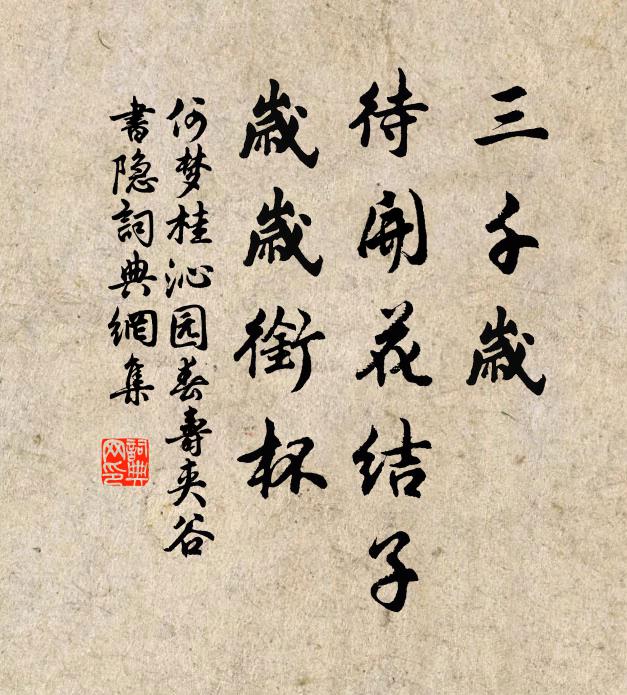 三千歲
待開花結子
歲歲銜杯
何梦桂沁园春壽夾谷
書隐詞典網集
詞典网印